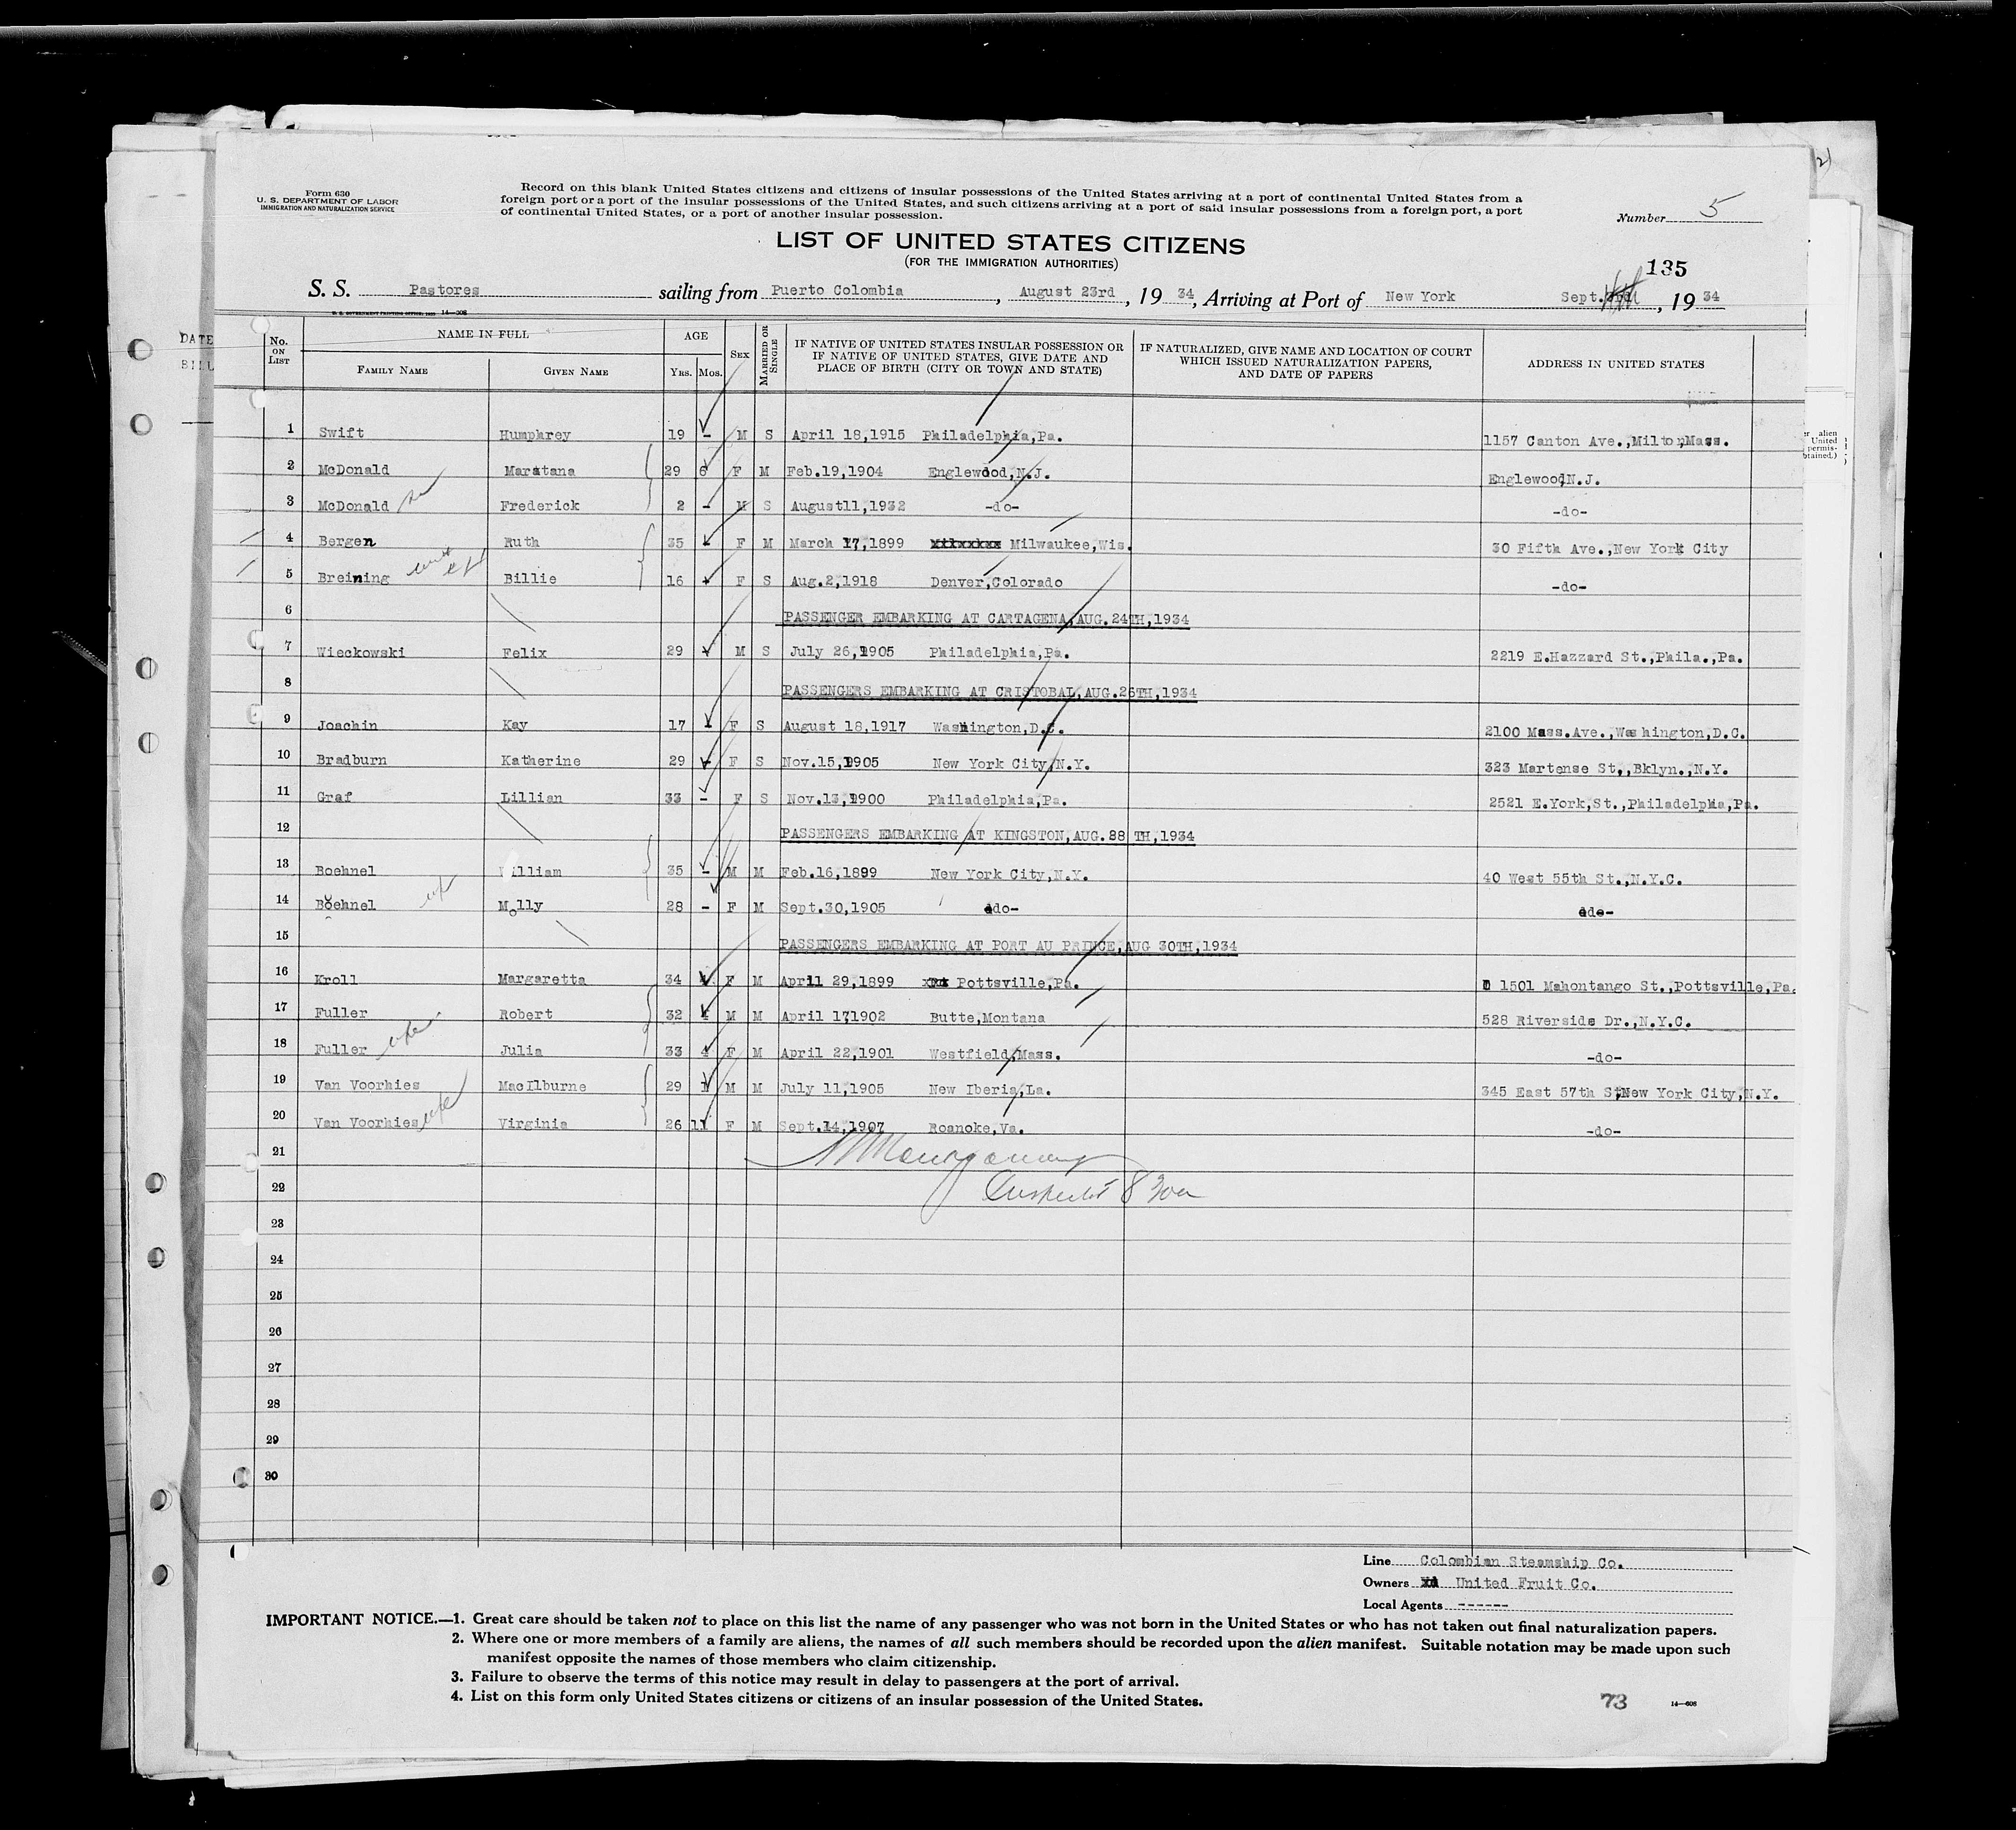 Form 630
U. S. DEPARTMENT OF LABOR
IMMIGRATION AND NATURALIZATION SERVICE
Record on this blank United States citizens and citizens of insular possessions of the United States arriving at a port of continental United States from a
foreign port or a port of the insular possessions of the United States, and such citizens arriving at a port of said insular possessions from a foreign port, a port
of continental United States, or a port of another insular possession.
Number 5
LIST OF UNITED STATES CITIZENS
(FOR THE IMMIGRATION AUTHORITIES)
135
S. S. Pastores sailing from Puerto Colombia, August 23rd, 19 34, Arriving at Port of New York Sept. , 19 34
U. S. GOVERNMENT PRINTING OFFICE: 14—608
DATE
No. ON LIST NAME IN FULL AGE SEX MARRIED OR SINGLE IF NATIVE OF UNITED STATES INSULAR POSSESSION OR IF NATIVE OF UNITED STATES, GIVE DATE AND PLACE OF BIRTH (CITY OR TOWN AND STATE) IF NATURALIZED, GIVE NAME AND LOCATION OF COURT WHICH ISSUED NATURALIZATION PAPERS, AND DATE OF PAPERS ADDRESS IN UNITED STATES
FAMILY NAME GIVEN NAME YRS. MOS.
1 Swift Humphrey 19 - M S April 18,1915 Philadelphia,Pa. 1157 Canton Ave.,Milton,Mass.
2 McDonald Maratana 29 6 F M Feb.19,1904 Englewood,N.J. Englewood,N.J.
3 McDonald Frederick 2 - M S August11,1932 -do- -do-
4 Bergen Ruth 35 F M March 17,1899 Milwaukee,Wis. 30 Fifth Ave.,New York City
5 Breining Billie 16 F S Aug.2,1918 Denver,Colorado -do-
6 PASSENGER EMBARKING AT CARTAGENA,AUG.24TH,1934
7 Wieckowski Felix 29 M S July 26,1905 Philadelphia,Pa. 2219 E.Hazzard St.,Phila.,Pa.
8 PASSENGERS EMBARKING AT CRISTOBAL,AUG.26TH,1934
9 Joachin Kay 17 F S August 18,1917 Washington,D.C. 2100 Mass.Ave.,Washington,D.C.
10 Bradburn Katherine 29 F S Nov.15,1905 New York City,N.Y. 323 Martense St.,Bklyn.,N.Y.
11 Graf Lillian 33 - F S Nov.13,1900 Philadelphia,Pa. 2521 E.York,St.,Philadelphia,Pa.
12 PASSENGERS EMBARKING AT KINGSTON,AUG.28 TH,1934
13 Boehnel William 35 - M M Feb.16,1899 New York City,N.Y. 40 West 55th St.,N.Y.C.
14 Boehnel Molly 28 - F M Sept.30,1905 -do- -do-
15 PASSENGERS EMBARKING AT PORT AU PRINCE,AUG 30TH,1934
16 Kroll Margaretta 34 4 F M April 29,1899 Pottsville,Pa. 1501 Mahontango St.,Pottsville,Pa.
17 Fuller Robert 32 4 M M April 171902 Butte,Montana 528 Riverside Dr.,N.Y.C.
18 Fuller wife Julia 33 4 F M April 22,1901 Westfield,Mass. -do-
19 Van Voorhies MacIlburne 29 1 M M July 11,1905 New Iberia,La. 345 East 57th St,New York City,N.Y.
20 Van Voorhies wife Virginia 26 11 F M Sept.14,1907 Roanoke,Va. -do-
21
22
23
24
25
26
27
28
29
30
Line Colombian Steamship Co.
Owners United Fruit Co.
Local Agents ------
IMPORTANT NOTICE.—1. Great care should be taken not to place on this list the name of any passenger who was not born in the United States or who has not taken out final naturalization papers.
2. Where one or more members of a family are aliens, the names of all such members should be recorded upon the alien manifest. Suitable notation may be made upon such
manifest opposite the names of those members who claim citizenship.
3. Failure to observe the terms of this notice may result in delay to passengers at the port of arrival.
4. List on this form only United States citizens or citizens of an insular possession of the United States.
73 14—608